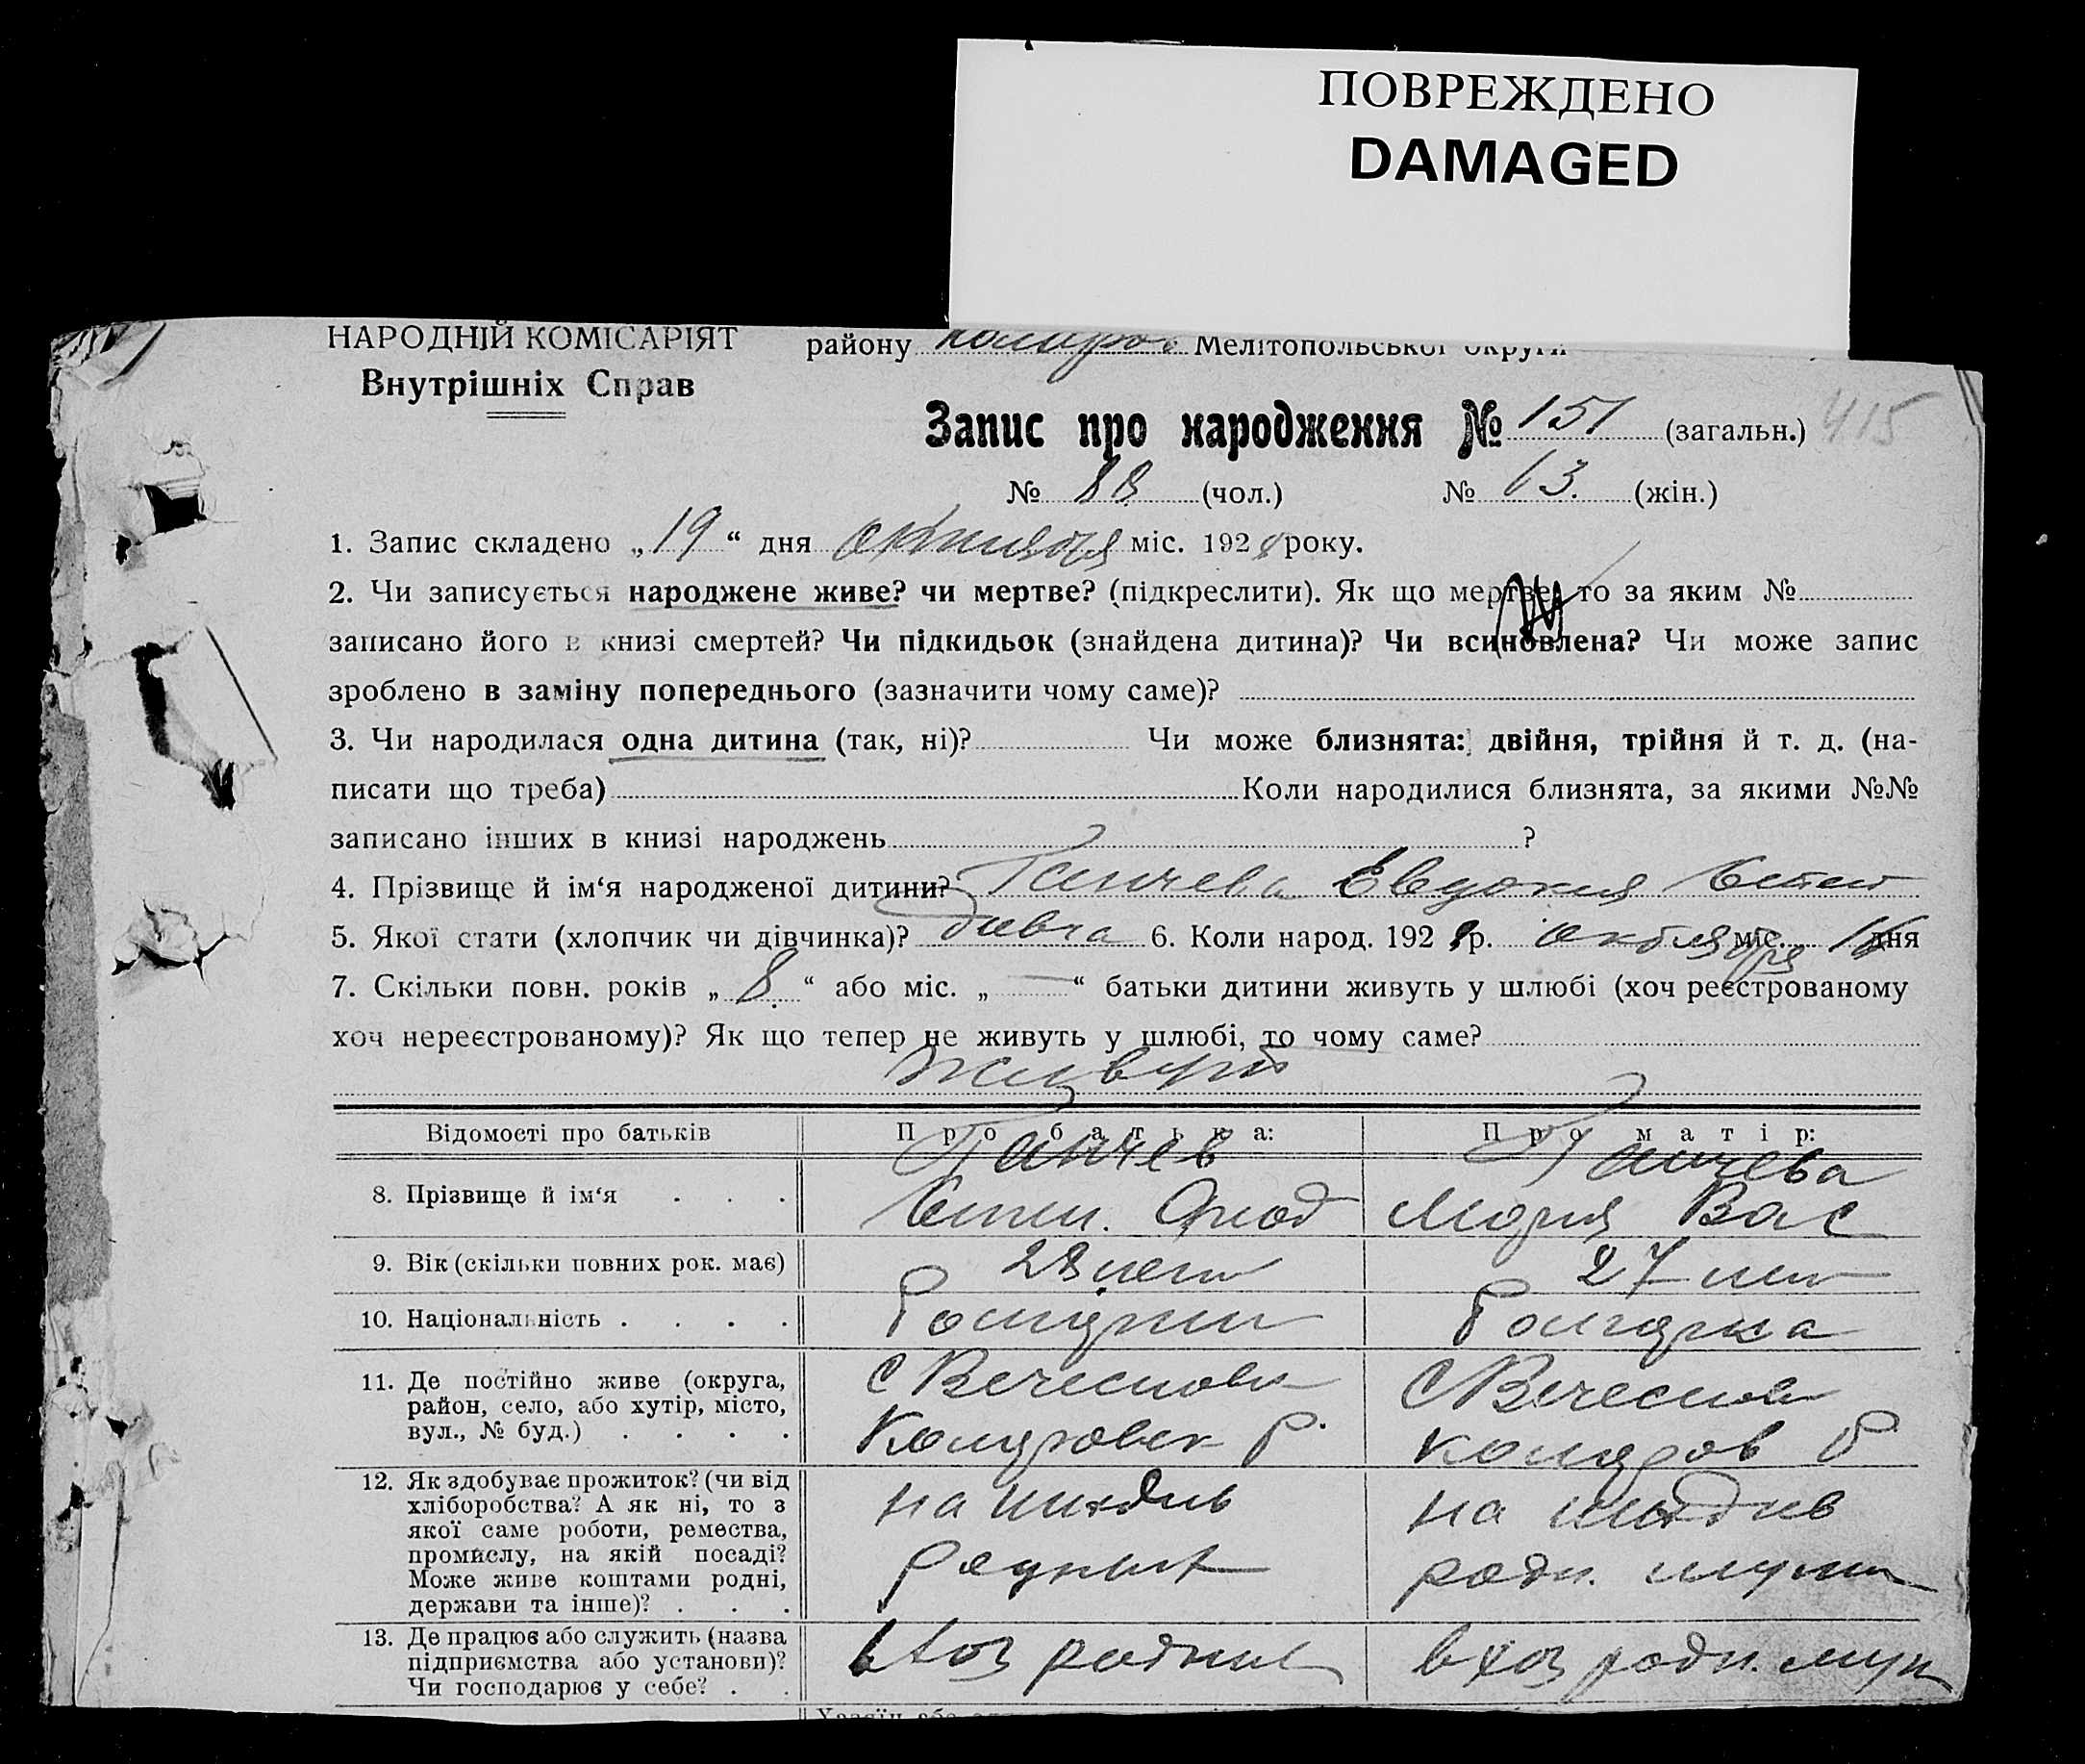 ПОВРЕЖДЕНО
DAMAGED
НАРОДНІЙ КОМІСАРІЯТ
Внутрішніх Справ
району Коляров Мелітопольської округи
Запис про народження № 151 (загальн.) 415
№ 88 (чол.) № 63. (жін.)
1. Запис складено „19“ дня октября міс. 1928 року.
2. Чи записується народжене живе? чи мертве? (підкреслити). Як що мертве, то за яким №
записано його в книзі смертей? Чи підкидьок (знайдена дитина)? Чи всиновлена? Чи може запис
зроблено в заміну попереднього (зазначити чому саме)?
3. Чи народилася одна дитина (так, ні)? Чи може близнята: двійня, трійня й т. д. (на-
писати що треба) Коли народилися близнята, за якими №№
записано інших в книзі народжень ?
4. Прізвище й ім‘я народженої дитини? Ганчева Евдокия Степ
5. Якої стати (хлопчик чи дівчинка)? дивча 6. Коли народ. 1928 р. октября міс. 16 дня
7. Скільки повн. років „8.“ або міс. „—“ батьки дитини живуть у шлюбі (хоч реєстрованому
хоч нереєстрованому)? Як що тепер не живуть у шлюбі, то чому саме?
живут
Відомості про батьків Про батька: Про матір:
8. Прізвище й ім‘я Ганчев Степ. Ганчева Мария Вас
9. Вік (скільки повних рок. має) 28 лет 27 лет
10. Національність Болгарин Болгарка
11. Де постійно живе (округа,
район, село, або хутір, місто,
вул., № буд.)
Коляровск Р. Коляров Р
12. Як здобуває прожиток? (чи від
хліборобства? А як ні, то з
якої саме роботи, ремества,
промислу, на якій посаді?
Може живе коштами родні,
держави та інше)?
на иждив на иждив
родн. мужа
13. Де працює або служить (назва
підприємства або установи)?
Чи господарює у себе?
в хоз родных в хоз родн. муж